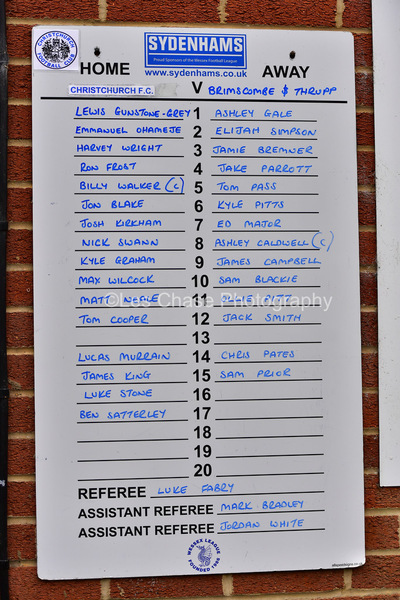 CHRISTCHURCH FOOTBALL CLUB
SYDENHAMS
Proud Sponsors of the Wessex Football League
www.sydenhams.co.uk
HOME AWAY
CHRISTCHURCH F.C. V BRIMSCOMBE & THRUPP
LEWIS GUNSTONE-GREY 1 ASHLEY GALE
EMMANUEL OHAMEJE 2 ELIJAH SIMPSON
HARVEY WRIGHT 3 JAMIE BREMNER
RON FROST 4 JAKE PARROTT
BILLY WALKER (C) 5 TOM PASS
JON BLAKE 6 KYLE PITTS
JOSH KIRKHAM 7 ED MAJOR
NICK SWANN 8 ASHLEY CALDWELL (C)
KYLE GRAHAM 9 JAMES CAMPBELL
MAX WILCOCK 10 SAM BLACKIE
MATT 11 PITT
©Les Chase Photography
TOM COOPER 12 JACK SMITH
13
LUCAS MURRAIN 14 CHRIS PATES
JAMES KING 15 SAM PRIOR
LUKE STONE 16
BEN SATTERLEY 17
18
19
20
REFEREE LUKE FABRY
ASSISTANT REFEREE MARK BRADLEY
ASSISTANT REFEREE JORDAN WHITE
WESSEX LEAGUE
FOUNDED 1986